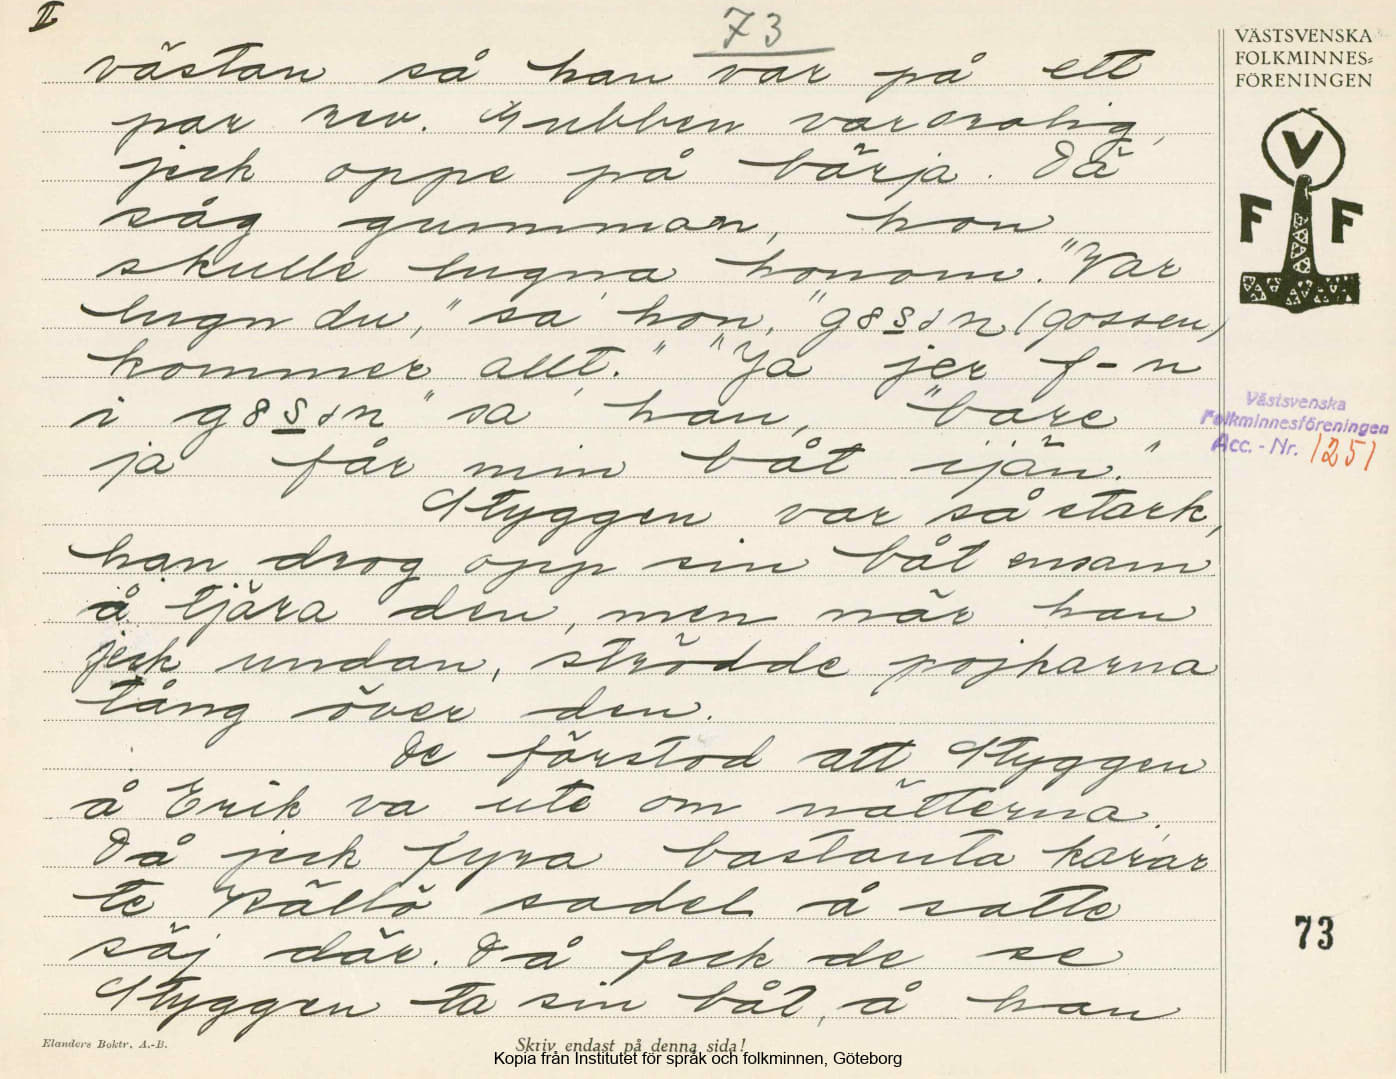 II
73
västan så han var på ett
par rev. Gubben var orolig,
jeck oppe på bärja. Då
såg gumman, hon
skulle lugna honom. "Var
lugn du," sa hon, "g8s̲ən (gossen)
kommer allt." "Ja jer f-n
i g8s̲ən" sa han, "bare
ja får min båt ijän."
Styggen var så stark,
han drog opp sin båt ensam
å tjära den, men när han
jeck undan, strödde pojkarna
tång över den.
De förstod att Styggen
å Erik va ute om nätterna.
Då jeck fyra bastanta karar
te Källö sadel å satte
säj där. Då feck de se
Styggen ta sin båt, å han
VÄSTSVENSKA
FOLKMINNES=
FÖRENINGEN
V
F F
Västsvenska
Folkminnesföreningen
Acc. - Nr. 1251
73
Elanders Boktr. A.-B.
Skriv endast på denna sida!
Kopia från Institutet för språk och folkminnen, Göteborg